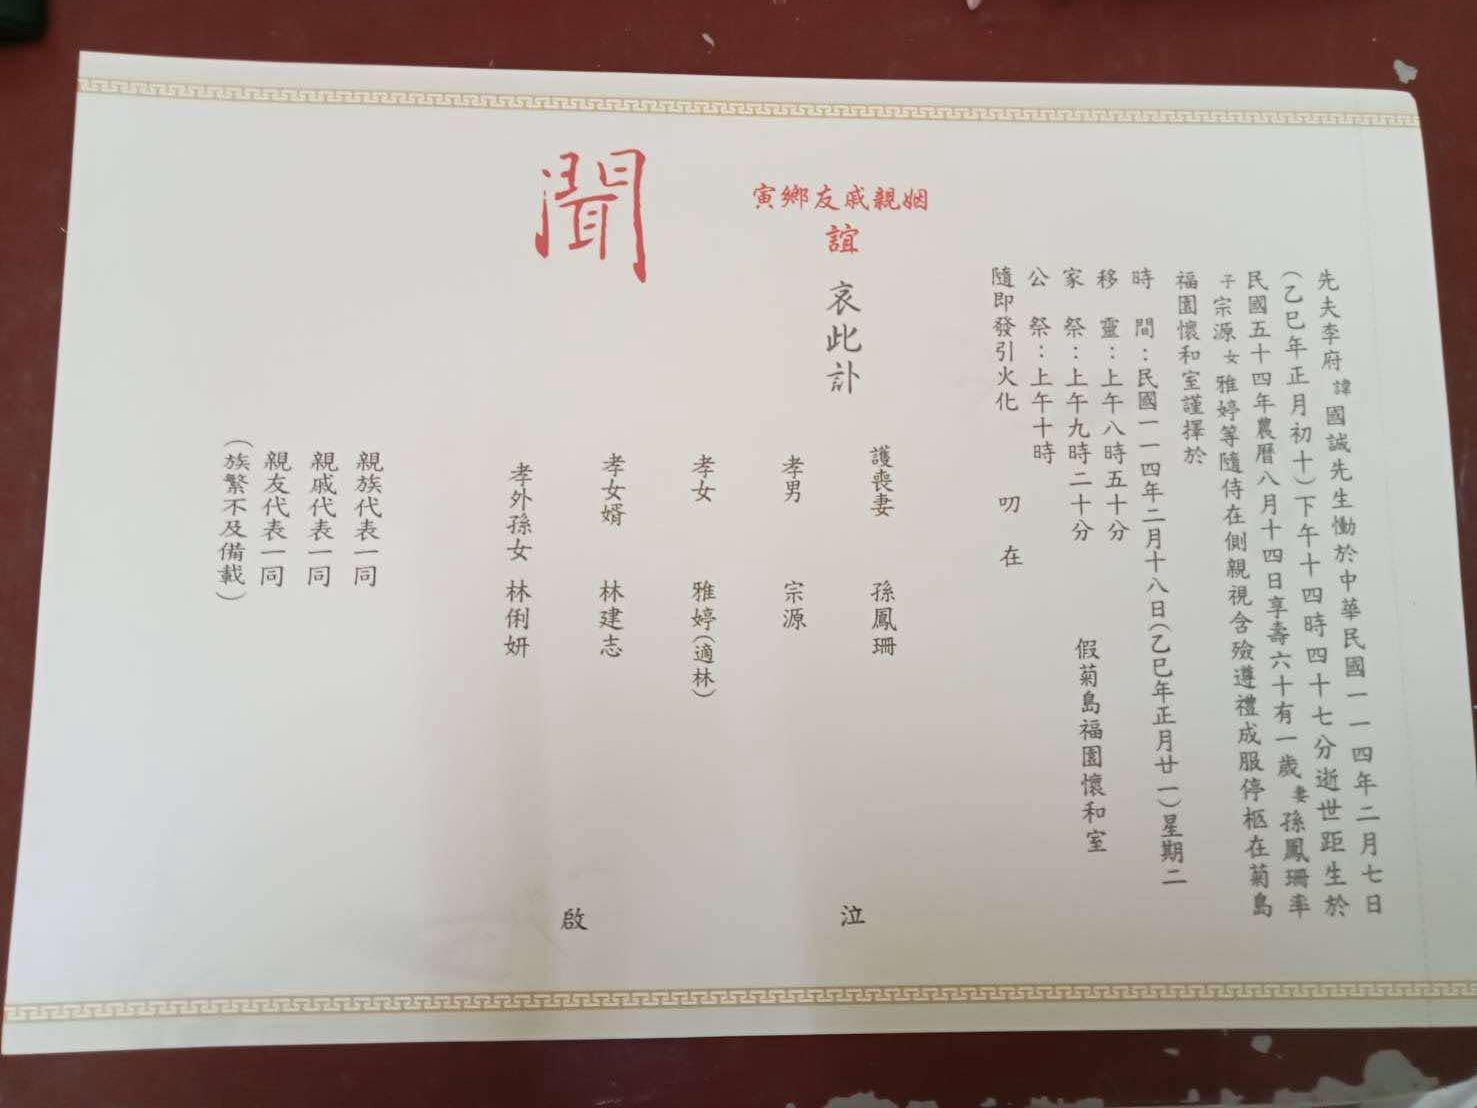 先夫李府 諱 國誠先生慟於中華民國一一四年二月七日
(乙巳年正月初十)下午十四時四十七分逝世距生於
民國五十四年農曆八月十四日享壽六十有一歲 妻 孫鳳珊率
子 宗源 女 雅婷等隨侍在側親視含殮遵禮成服停柩在菊島
福園懷和室謹擇於
時 間：民國一一四年二月十八日(乙巳年正月廿一)星期二
移 靈：上午八時五十分
家 祭：上午九時二十分 假菊島福園懷和室
公 祭：上午十時
隨即發引火化 叨 在
寅鄉友戚親姻
誼
哀此訃
聞
護喪妻 孫鳳珊
孝男 宗源
孝女 雅婷(適林)
孝女婿 林建志
孝外孫女 林俐妍
泣
啟
親族代表一同
親戚代表一同
親友代表一同
(族繁不及備載)